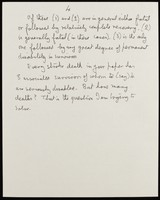 4
Of these (1) and (2) are in general either fatal
or followed by relatively complete recovery. (2)
is generally fatal (in these cases). (3) is the only
one followed by any great degree of permanent
disability in survivors.
Every
death in your paper
survivors of whom 10 (say) is
are seriously disabled. But how many
deaths? That is the question I am trying to
raise.